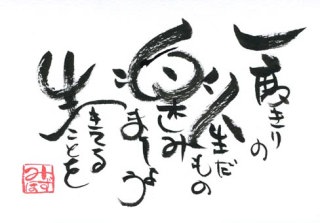 一度きりの
人生だもの
楽しみ
ましょう
生きてる
ことを